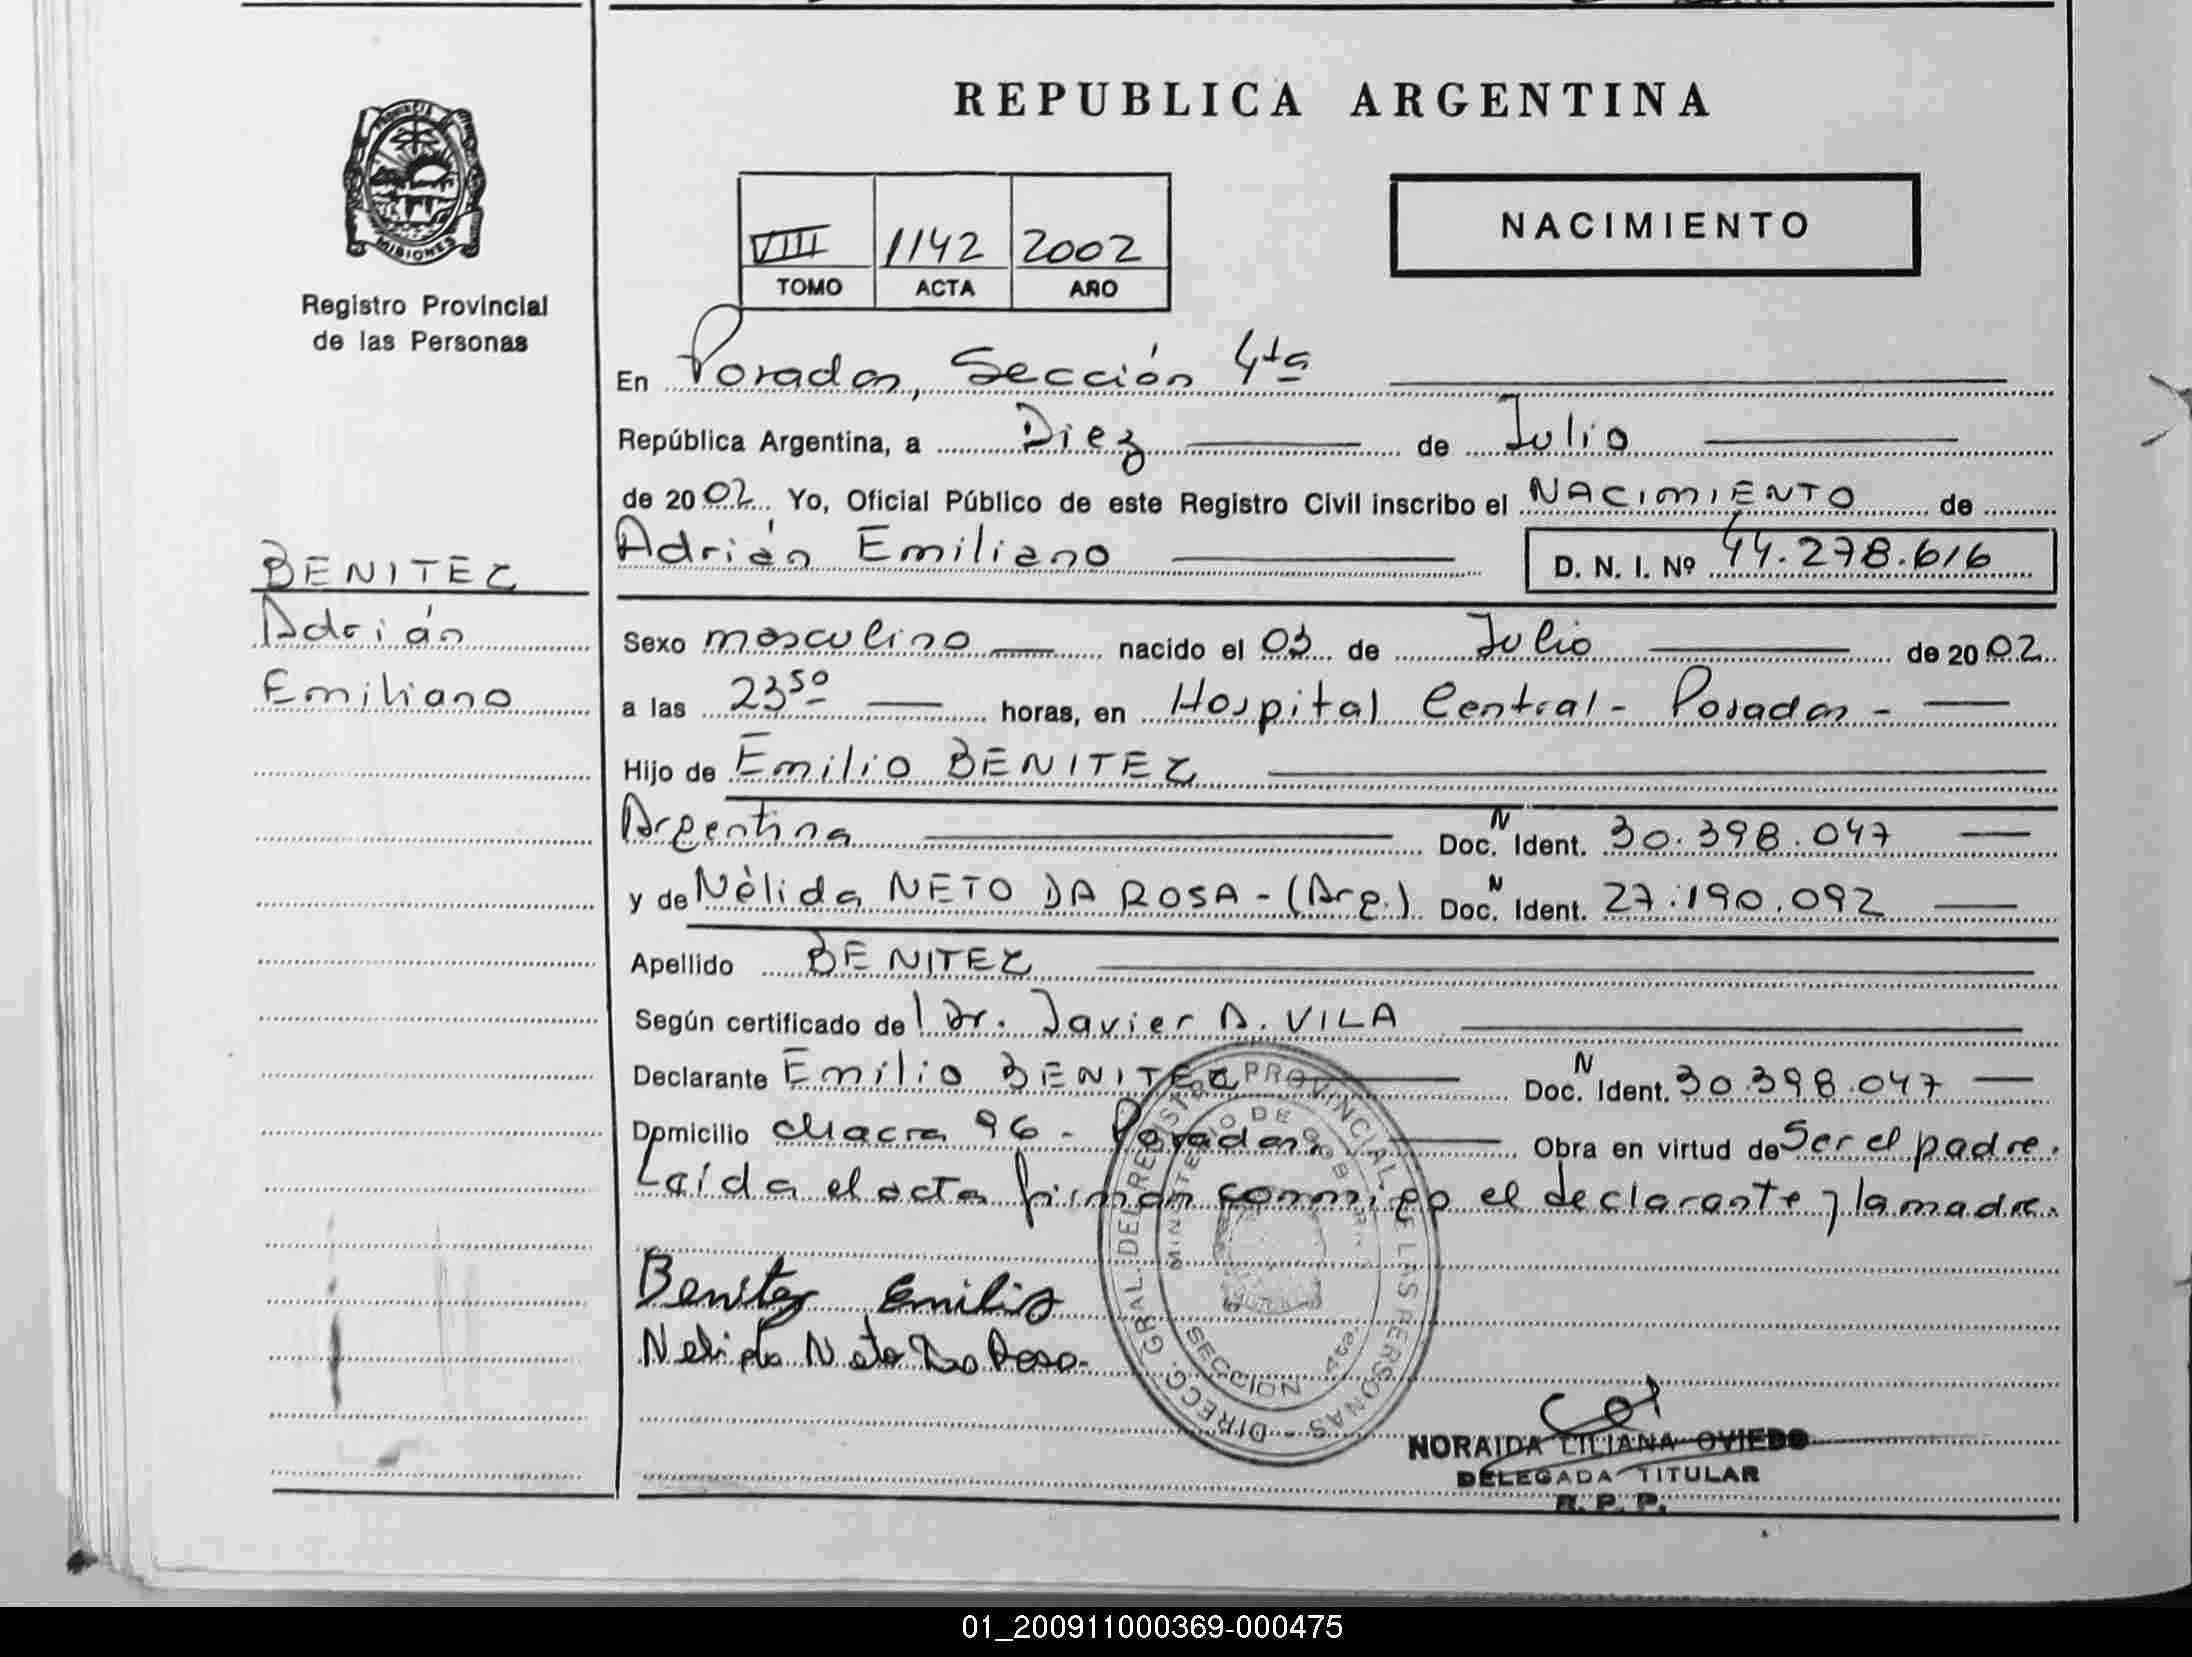 REPUBLICA ARGENTINA
PROVINCIA
MISIONES
Registro Provincial
de las Personas
VIII 1142 2002
TOMO ACTA AÑO
NACIMIENTO
En Posadas, Sección 4ta
República Argentina, a Diez de Julio
de 2002. Yo, Oficial Público de este Registro Civil inscribo el NACIMIENTO de
Adrián Emiliano D. N. I. Nº 44.278.616
BENITEZ
Adrián
Emiliano
Sexo masculino nacido el 03 de Julio de 2002
a las 23 50 horas, en Hospital Central - Posadas -
Hijo de Emilio BENITEZ
Argentina Doc. N Ident. 30.398.047
y de Nélida NETO DA ROSA - (Arg.) Doc. N Ident. 27.190.092
Apellido BENITEZ
Según certificado del Dr. Javier A. VILA
Declarante Emilio BENITEZ Doc. N Ident. 30.398.047
Domicilio Chacra 96 - Posadas Obra en virtud de Ser el padre.
Leída el acta firman conmigo el declarante y la madre.
Benitez Emilio
Nelida Neto Da Rosa
DIRECC. GRAL. DEL REGISTRO PROVINCIAL DE LAS PERSONAS
MINISTERIO DE GOBIERNO
SECCION
NORAIDA LILIANA OVIEDO
DELEGADA TITULAR
R. P. P.
01_200911000369-000475